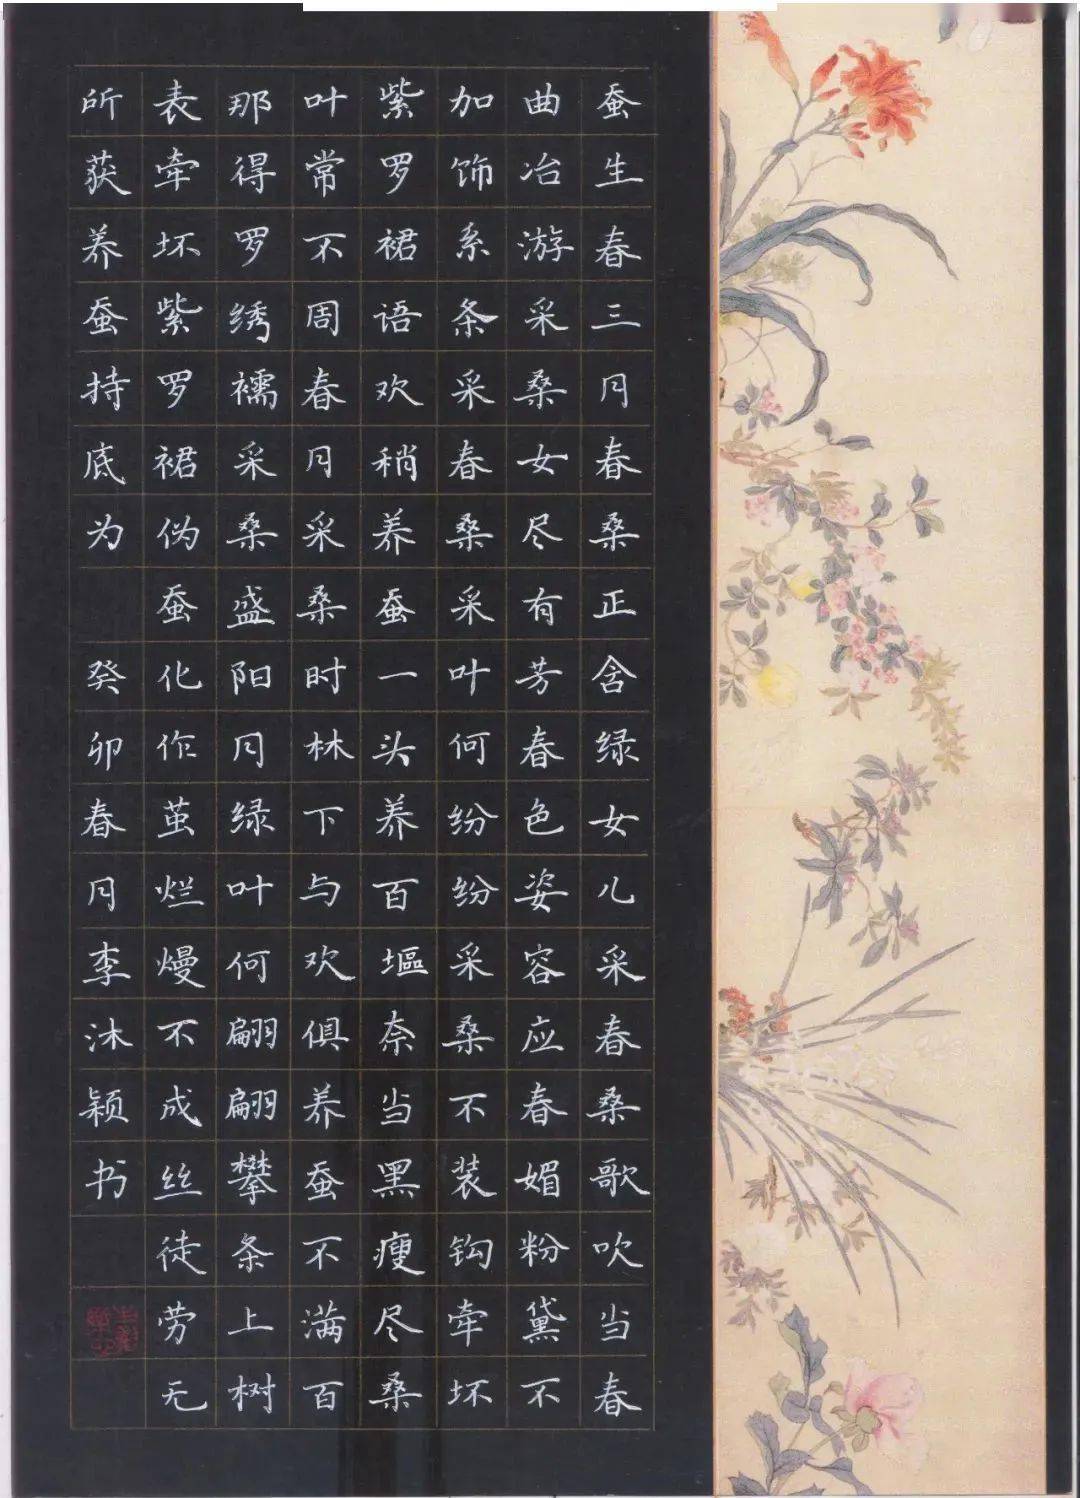 蚕生春三月春桑正含绿女儿采春桑歌吹当春
曲冶游采桑女尽有芳春色姿容应春媚粉黛不
加饰系条采春桑采叶何纷纷采桑不装钩牵坏
紫罗裙语欢稍养蚕一头养百塸奈当黑瘦尽桑
叶常不周春月采桑时林下与欢俱养蚕不满百
那得罗绣襦采桑盛阳月绿叶何翩翩攀条上树
表牵坏紫罗裙伪蚕化作茧烂熳不成丝徒劳无
所获养蚕持底为 癸卯春月李沐颖书